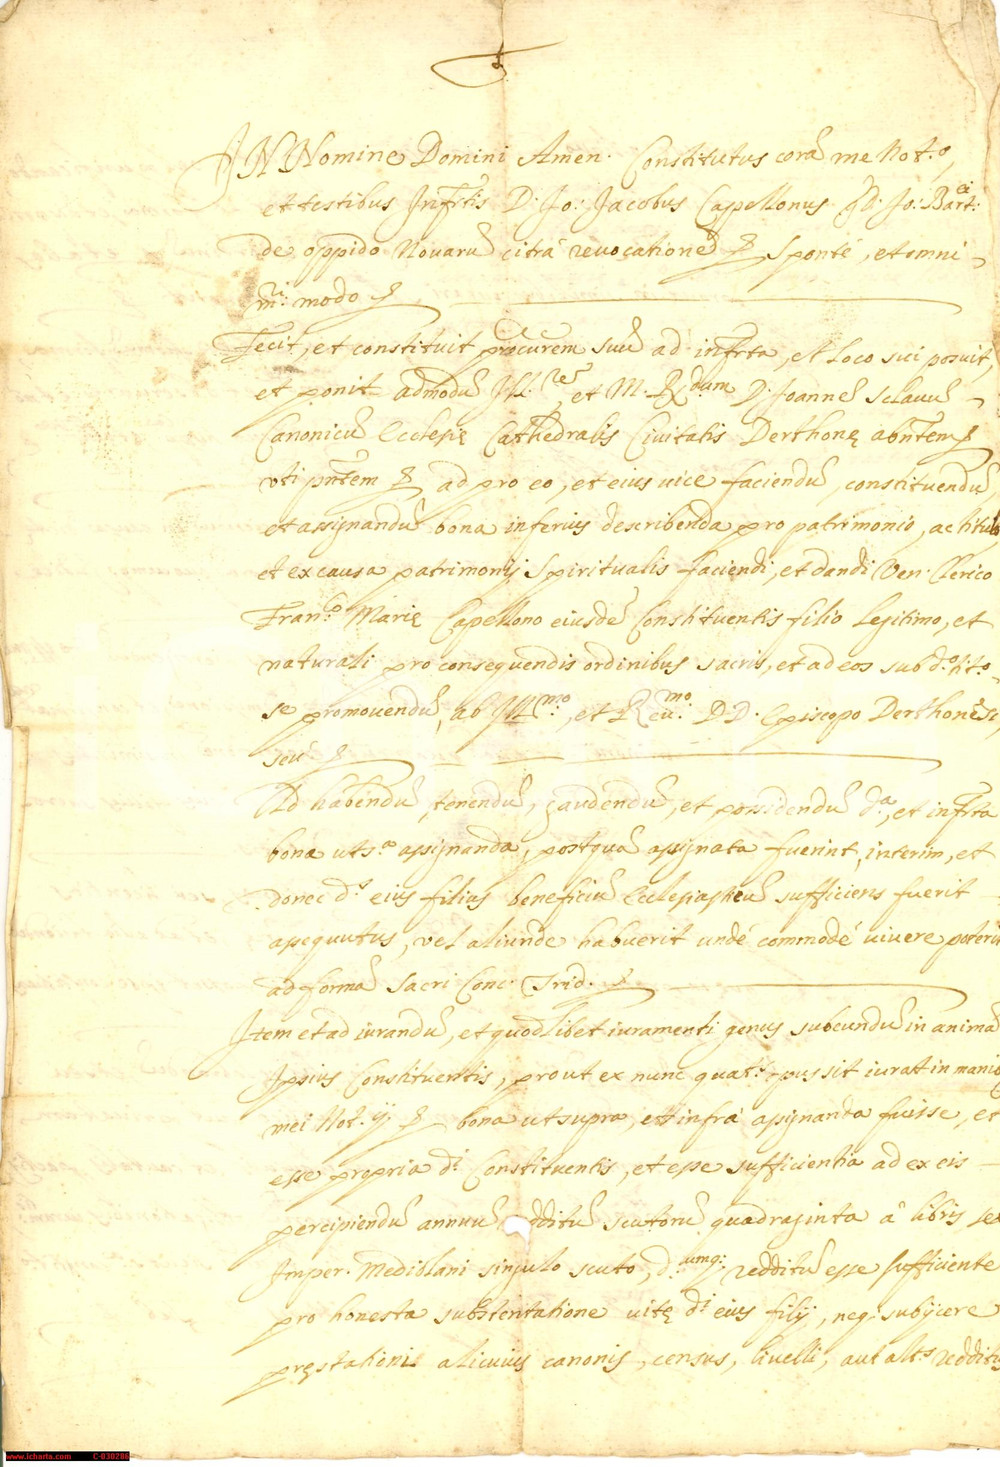 IN Nomine Domini Amen. Constitutus corã me Not.º,
et testibus Infr̃tis D. Jo: Jacobus Cappellonus q̃ D: Jo: Bart:ei
de oppido Novarũ citrà revocationẽ &, Sponté, et omni
m:i modo &
Fecit, et constituit procũrem suũ ad infr̃ta, et loco sui posuit,
et ponit admodũ Ill.rem et M. R.dum D. Joannẽ Sclavũ
Canonicũ Ecclesię Cathedralis Civitatis Derthonę abñtem &
uti pñtem & ad pro eo, et eius vice faciendũ, constituendũ,
et assignandũ bona inferius describenda pro patrimonio, ac titulo
et ex causa patrimonij Spiritualis faciendi, et dandi Ven. Clerico
Fran.co Marię Capellono eiusdẽ Constituentis filio legitimo, et
naturali pro consequendis ordinibus sacris, et ad eos sub d.º tit.º
se promovendũ ab Ill.mo, et Rev.mo D D. Episcopo Derthonẽsi,
seu &
Ad habendũ, tenendũ, gaudendũ, et possidendũ d.a, et infr̃ta
bona ut s.a assignanda, postquã assignata fuerint, interim, et
donec d.s eius filius beneficiũ Ecclesiasticũ sufficiens fuerit
assequutus, vel aliunde habuerit undé commodé vivere poterit
ad formã Sacri Conc. Trid. &
Item et ad iurandũ, et quodlibet iuramenti genus subeundũ in animã
Ipsius Constituentis, prout ex nunc quat.s opus sit iurat in manib
mei Not.ij & bona ut supra, et infrà assignanda fuisse, et
esse propria d.i Constituentis, et esse sufficientia ad ex eis
percipiendũ annuũ redditũ scutorũ quadraginta à libris sex
Imper. Mediolani singulo scuto, d.umq: redditũ esse sufficiente
pro honesta substentatione vitę d.i eius filij, neq: subijcere
pręstationi alicuius canonis, census, livelli, aut alt.s redditus
www.icharta.com C-030286